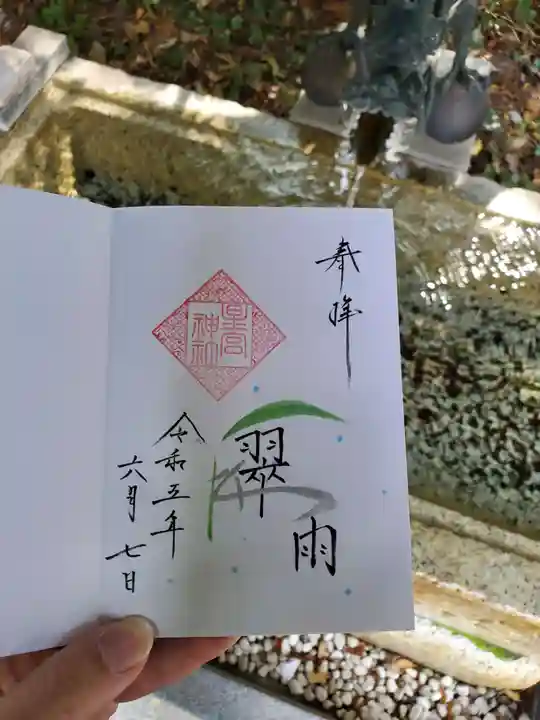 奉拝
星宮
神社
翠雨
令和五年
六月七日